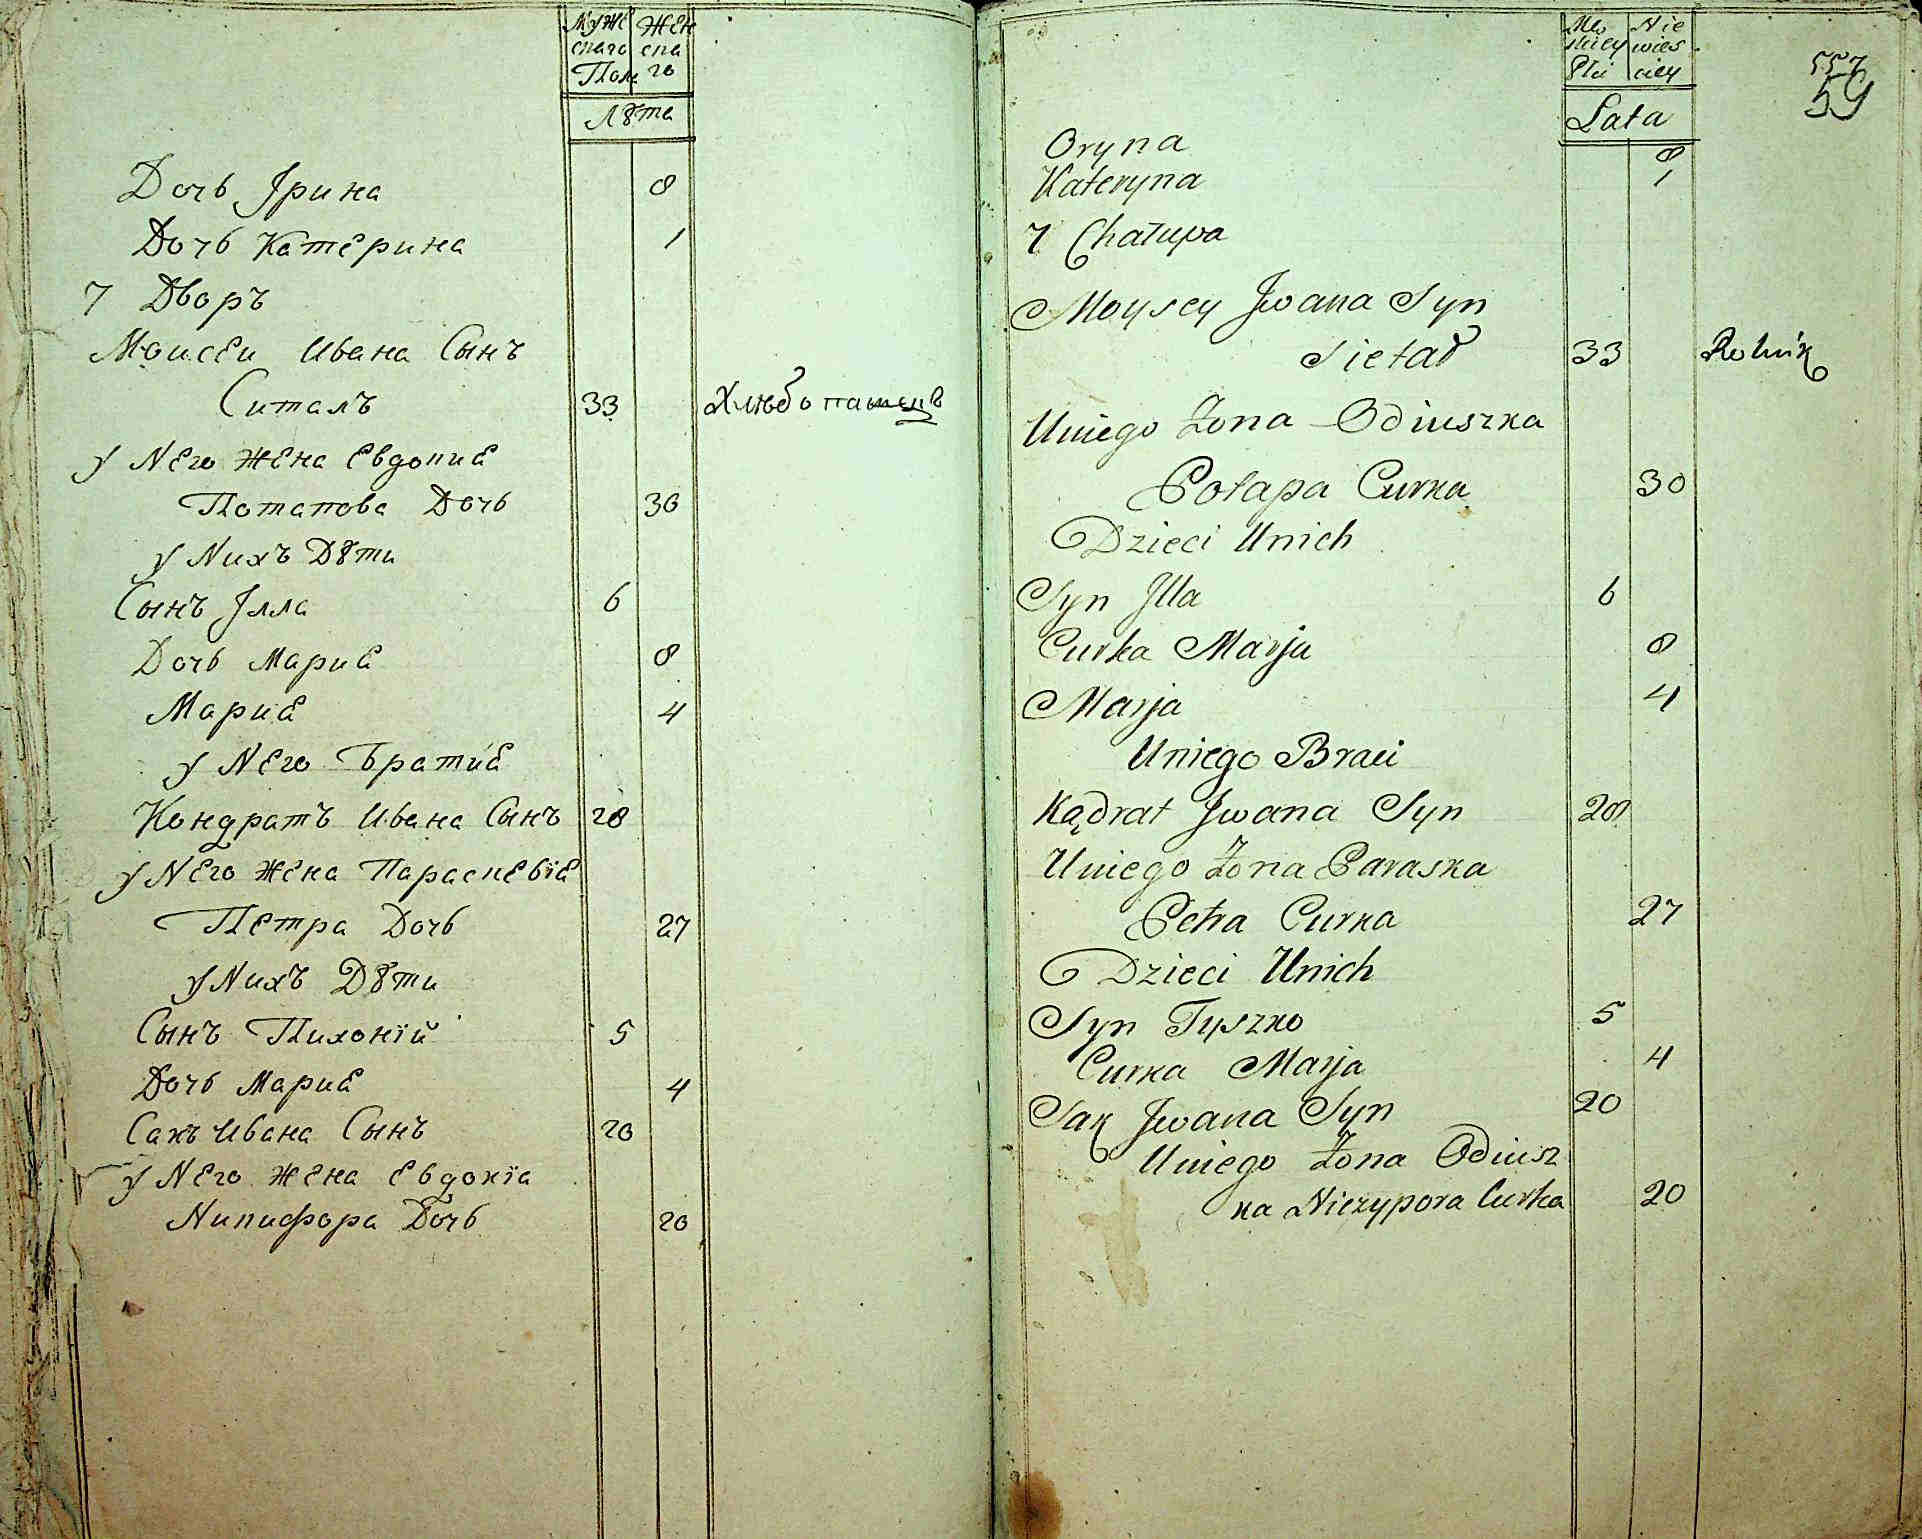 Муже Жен
скаго ска
Полу го
Лѣта
Дочь Ірина 8
Дочь Катерина 1
7 Дворъ
Моисеи Ивана Сынъ
Ситалъ 33 Хлѣбопашецъ
у Него Жена Евдокиа
Потапова Дочь 30
у Нихъ Дѣти
Сынъ Iлла 6
Дочь Мариа 8
Мариа 4
у Него Братиа
Кондратъ Ивана Сынъ 28
у Него Жена Параскевіа
Петра Дочь 27
у Нихъ Дѣти
Сынъ Тихоній 5
Дочь Мариа 4
Сакъ Ивана Сынъ 20
у Него Жена Евдокіа
Никифора Дочь 20
Nie
skiey wies
Płci ciey
Lata
59
Oryna 8
Kateryna 1
7 Chałupa
Moysey Jwana Syn
Sietał 33 Rolnik
Uniego Żona Odiuszka
Potapa Curka 30
Dzieci Unich
Syn Jlla 6
Curka Marja 8
Marja 4
Uniego Braci
Kądrat Jwana Syn 28
Uniego Żona Paraska
Petra Curka 27
Dzieci Unich
Syn Tyszko 5
Curka Marja 4
Sak Jwana Syn 20
Uniego Żona Odiusz
ka Niczypora Curka 20